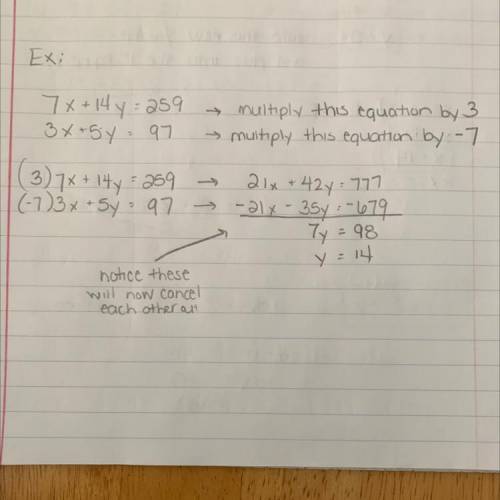 Ex:
7x + 14y = 259 → multiply this equation by 3
3x + 5y = 97 → multiply this equation by -7
(3) 7x + 14y = 259 → 21x + 42y = 777
(-7) 3x + 5y = 97 → -21x - 35y = -679
7y = 98
y = 14
notice these
will now cancel
each other